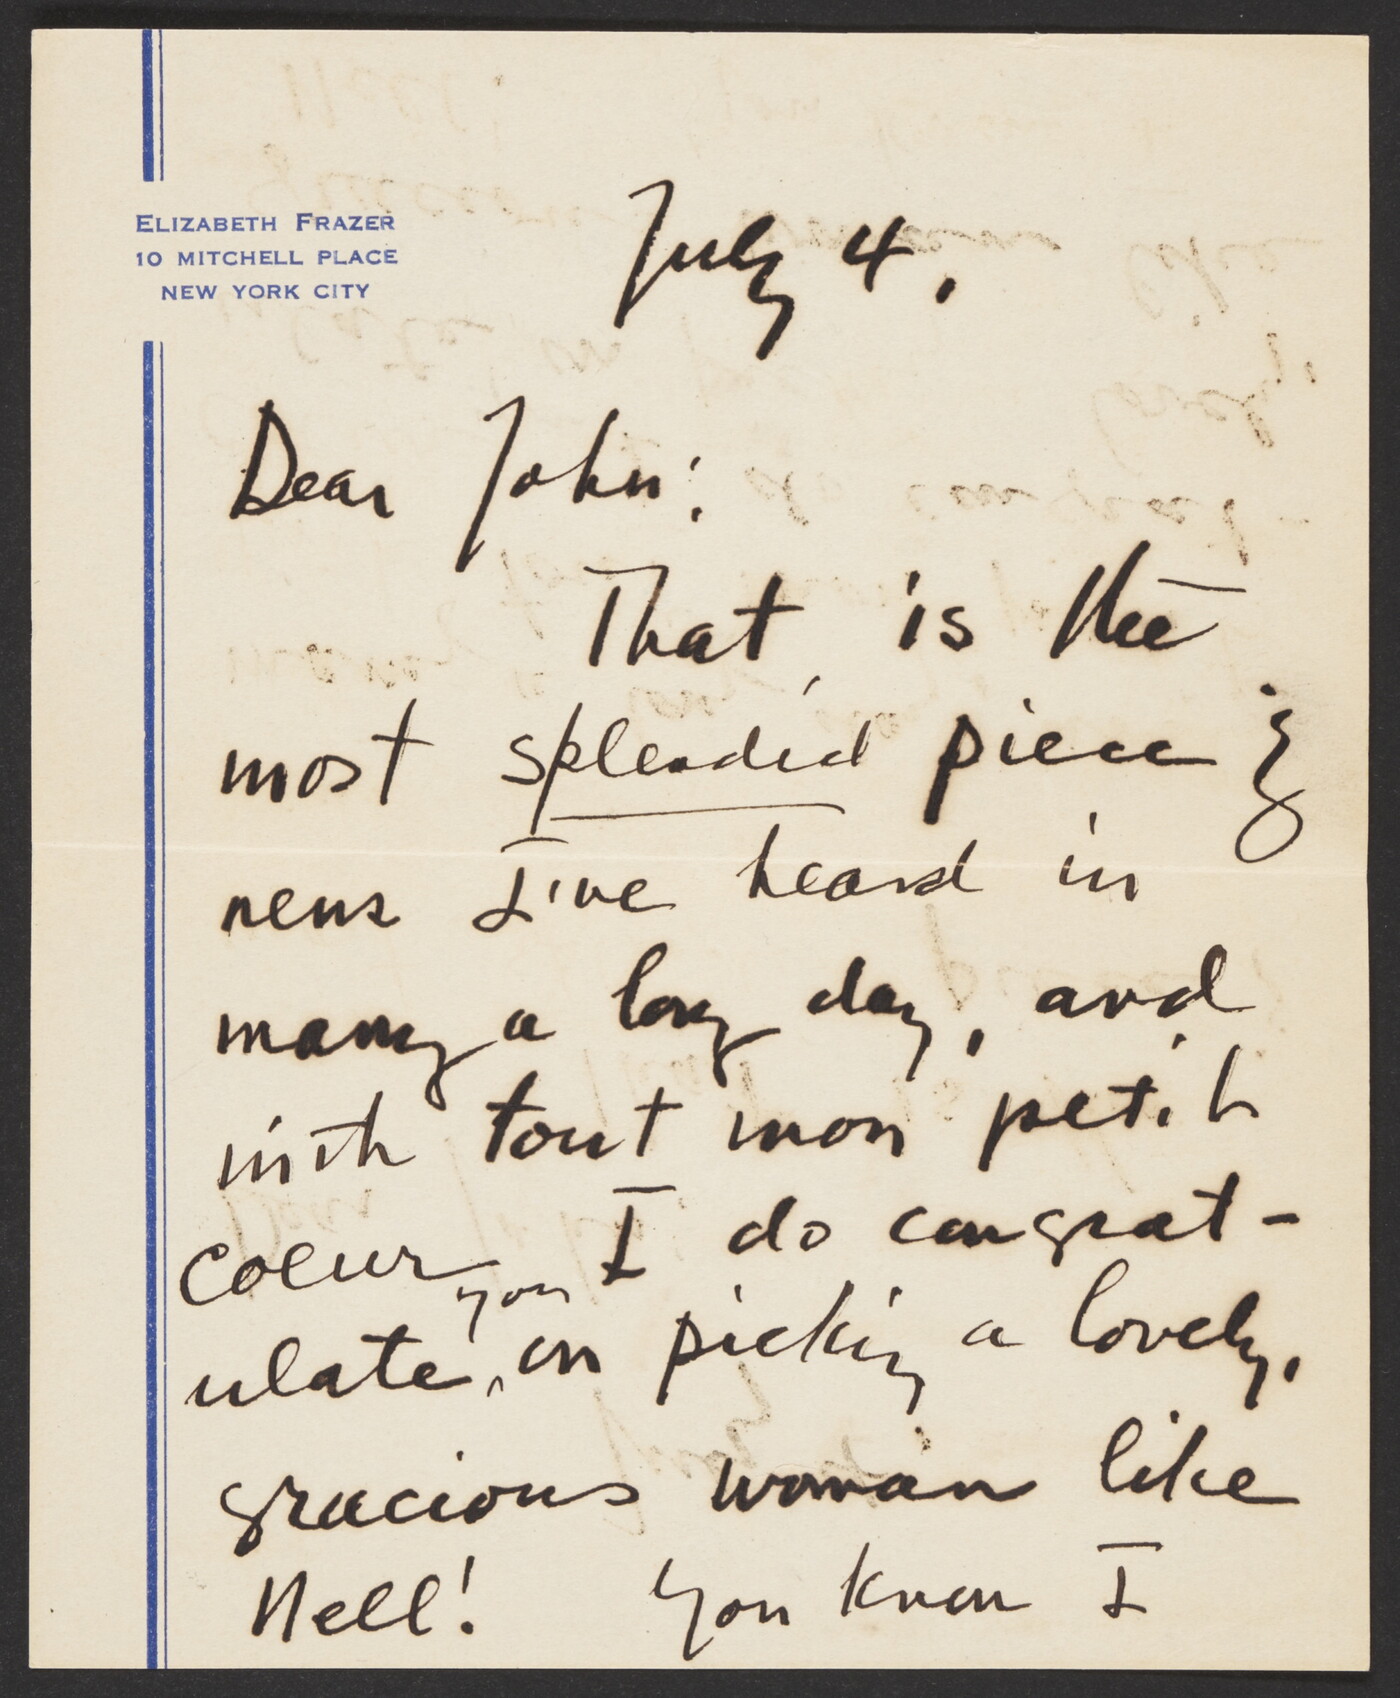 ELIZABETH FRAZER
10 MITCHELL PLACE
NEW YORK CITY
July 4,
Dear John:
That is the
most splendid piece of
news I've heard in
many a long day, and
with tout mon petit
coeur I do congrat-
ulate you on picking a lovely,
gracious woman like
Nell! You know I